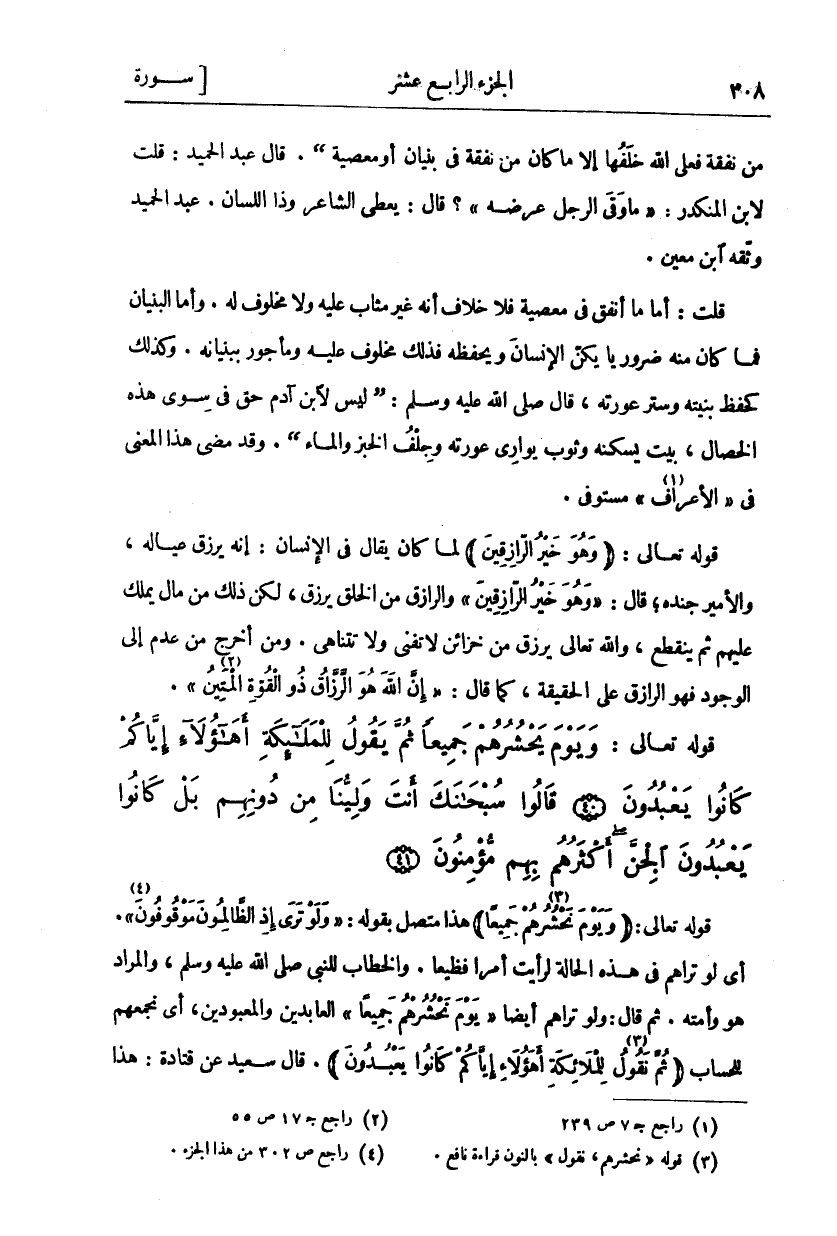 ٣٠٨ الجزء الرابع عشر [ ســـورة
من نفقة فعلى الله خلَفُها إلا ما كان من نفقة فى بنيان أو معصية “ . قال عبد الحميد : قلت
لابن المنكدر : « ما وَقَى الرجل عرضـه » ؟ قال : يعطى الشاعر وذا اللسان . عبد الحميد
وثّقه ٱبن معين .
قلت : أما ما أنفق فى معصية فلا خلاف أنه غير مثاب عليه ولا مخلوف له . وأما البنيان
فمـا كان منه ضروريا يكنّ الإنسانَ ويحفظه فذلك مخلوف عليـه ومأجور ببنيانه . وكذلك
كحفظ بنيته وستر عورته ، قال صلى الله عليه وسـلم : ” ليس لٱبن آدم حق فى سِـوى هذه
الخصال ، بيت يسكنه وثوب يوارِى عورته وجِلْفُ الخبز والمـاء “ . وقد مضى هذا المعنى
فى « الأعراف(١) » مستوفى .
قوله تعـالى : ﴿ وَهُوَ خَيْرُ الرَّازِقِينَ ﴾ لمـا كان يقال فى الإنسان : إنه يرزق عيـاله ،
والأمير جنده؛ قال : « وَهُوَ خَيْرُ الرَّازِقِينَ » والرازق من الخلق يرزق ، لكن ذلك من مال يملك
عليهم ثم ينقطع ، والله تعالى يرزق من خزائن لا تفنى ولا تتناهى . ومن أخرج من عدم إلى
الوجود فهو الرازق على الحقيقة ، كما قال : « إِنَّ اللهَ هُوَ الرَّزَّاقُ ذُو الْقُوَّةِ الْمَتِينُ(٢) » .
قوله تعـالى : وَيَوْمَ يَحْشُرُهُمْ جَمِيعًا ثُمَّ يَقُولُ لِلْمَلَٰٓئِكَةِ أَهَٰٓؤُلَآءِ إِيَّاكُمْ
كَانُوا يَعْبُدُونَ ﴿٤٠﴾ قَالُوا سُبْحَٰنَكَ أَنتَ وَلِيُّنَا مِن دُونِهِم بَلْ كَانُوا
يَعْبُدُونَ ٱلْجِنَّ ۖ أَكْثَرُهُم بِهِم مُّؤْمِنُونَ ﴿٤١﴾
قوله تعالى : ﴿ وَيَوْمَ نَحْشُرُهُمْ(٣) جَمِيعًا ﴾ هذا متصل بقوله : « وَلَوْ تَرَى إِذِ الظَّالِمُونَ مَوْقُوفُونَ(٤) » .
أى لو تراهم فى هـذه الحالة لرأيت أمرا فظيعا . والخطاب للنبى صلى الله عليه وسلم ، والمراد
هو وأمته . ثم قال : ولو تراهم أيضا « يَوْمَ نَحْشُرُهُمْ جَمِيعًا » العابدين والمعبودين ، أى نجمعهم
للحساب ﴿ ثُمَّ نَقُولُ(٣) لِلْمَلَائِكَةِ أَهَؤُلَاءِ إِيَّاكُمْ كَانُوا يَعْبُدُونَ ﴾ . قال سعيد عن قتادة : هذا
(١) راجع جـ ٧ ص ٢٣٩ (٢) راجع جـ ١٧ ص ٥٥
(٣) قوله « نحشرهم ، نقول » بالنون قراءة نافع . (٤) راجع ص ٣٠٢ من هذا الجزء .